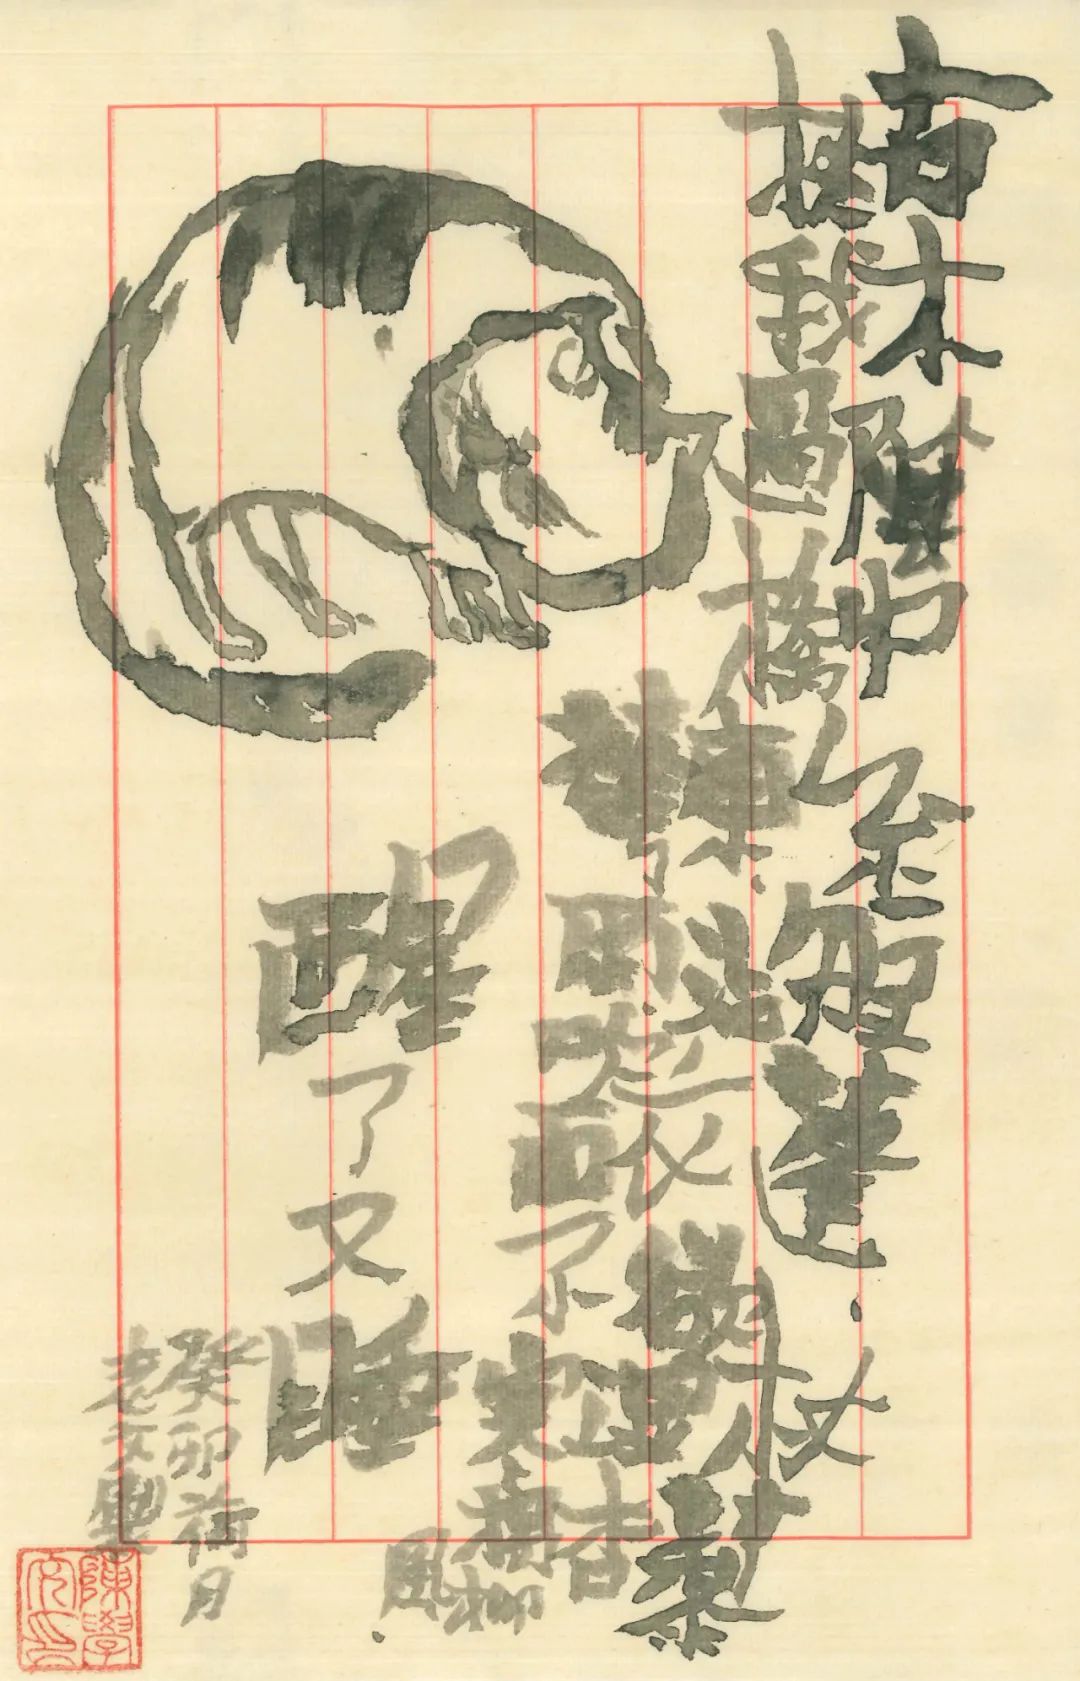 古木陰中系短蓬杖藜
扶我過橋東沾衣欲濕杏
花雨吹面不寒楊柳風
醒了又睡
癸卯荷月
老文
陳學文印